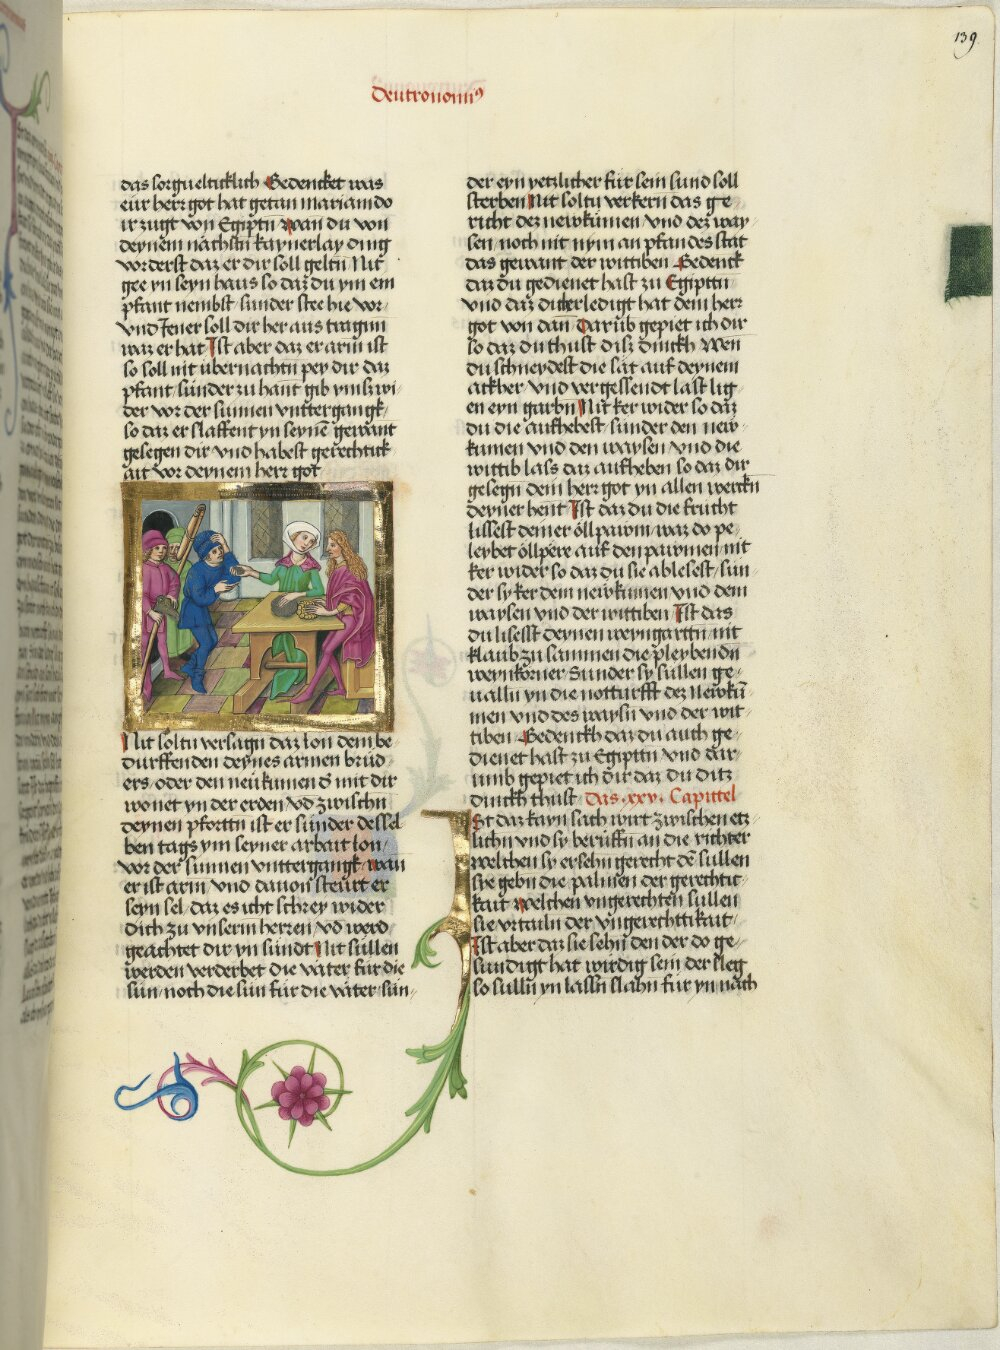 139
deutronomiꝰ
das sorguelticklich Gedencket was
eur herr got hat getan mariam do
ir zugt von Egiptn wan du von
deynem nachstn kaynerlay ding
vorderst daz er dir soll geltn Nit
gee yn seyn haus so daz du ym ein
pfant nembst sunder stee hie vor
vnd Jener soll dir her aus tragnn
waz er hat Ist aber daz er arm ist
so soll nit ubernachtn pey dir daz
pfant sunder zu hant gib yms wi
der vor der sunnen vnttergangk
so daz er slaffent yn seynē gewant
gelegen dir vnd habest gerechtick
ait vor deynem herr got
Nit soltu versagn daz lon dem be
durffenden deynes armen brud
ers oder den neukumend mit dir
wonet yn der erden vd zwischn
deynen pforttn ist er sunder dessel
ben tags ym seyner arbait lon
vor der sunnen vnttergangk wan
er ist arm vnd dauon steurt er
seyn sel daz es icht schrey wider
dich zu vnserm herren vd werd
geachtet dir yn sundt Nit sullen
werden verderbet die vater fur die
sun noch die sun fur die vater sun
der eyn yetzlicher fur sein sund soll
sterben Nit soltu verkern das ge
richt dez newkumen vnd dez way
sen noch nit nym an pfandes stat
das gewant der wittiben Gedenck
daz du gedienet hast zu Egipttn
vnd daz dich erledigt hat dein herr
got von dan Darub gepiet ich dir
so daz du thust disz dinckh Wen
du schneydest die sat auf deynem
ackher vnd vergessendt last lig
en eyn garbn Nit ker wider so daz
du die aufhebest sunder den new
kumen vnd den waysen vnd die
wittib lass daz aufheben so daz dir
gesegn dein herr got yn allen werckn
deyner hent Ist daz du die frucht
lissest deiner ollpawm waz do pe
leybet ollpere auf den pawmen nit
ker wider so daz du sie ablesest sun
der sy ker dem newkumen vnd dem
waysen vnd der wittiben Ist das
du lisesst deynen weyngarttn nit
klaub zu sammen die pleybendn
weynkorner Sunder sy sullen ge
ualln yn die notturfft dez newku
men vnd des waysn vnd der wit
tiben Gedenckh daz du auch ge
dienet hast zu Egipttn vnd dar
umb gepiet ich dir daz du ditz
dinckh thust das .xxv. Capittel
Ist daz kayn sach wirt zwischen etz
lichn vnd sy beruffn an die richter
welchen sy ersehn gerecht dē sullen
sye gebn die palmen der gerechtic
kait welchen vngerechten sullen
sie vrtailn der vngerechttikait
Ist aber daz sie sehn den der do ge
sundigt hat wirdig sein der sleg
so sulln yn lassn slahn fur yn nach